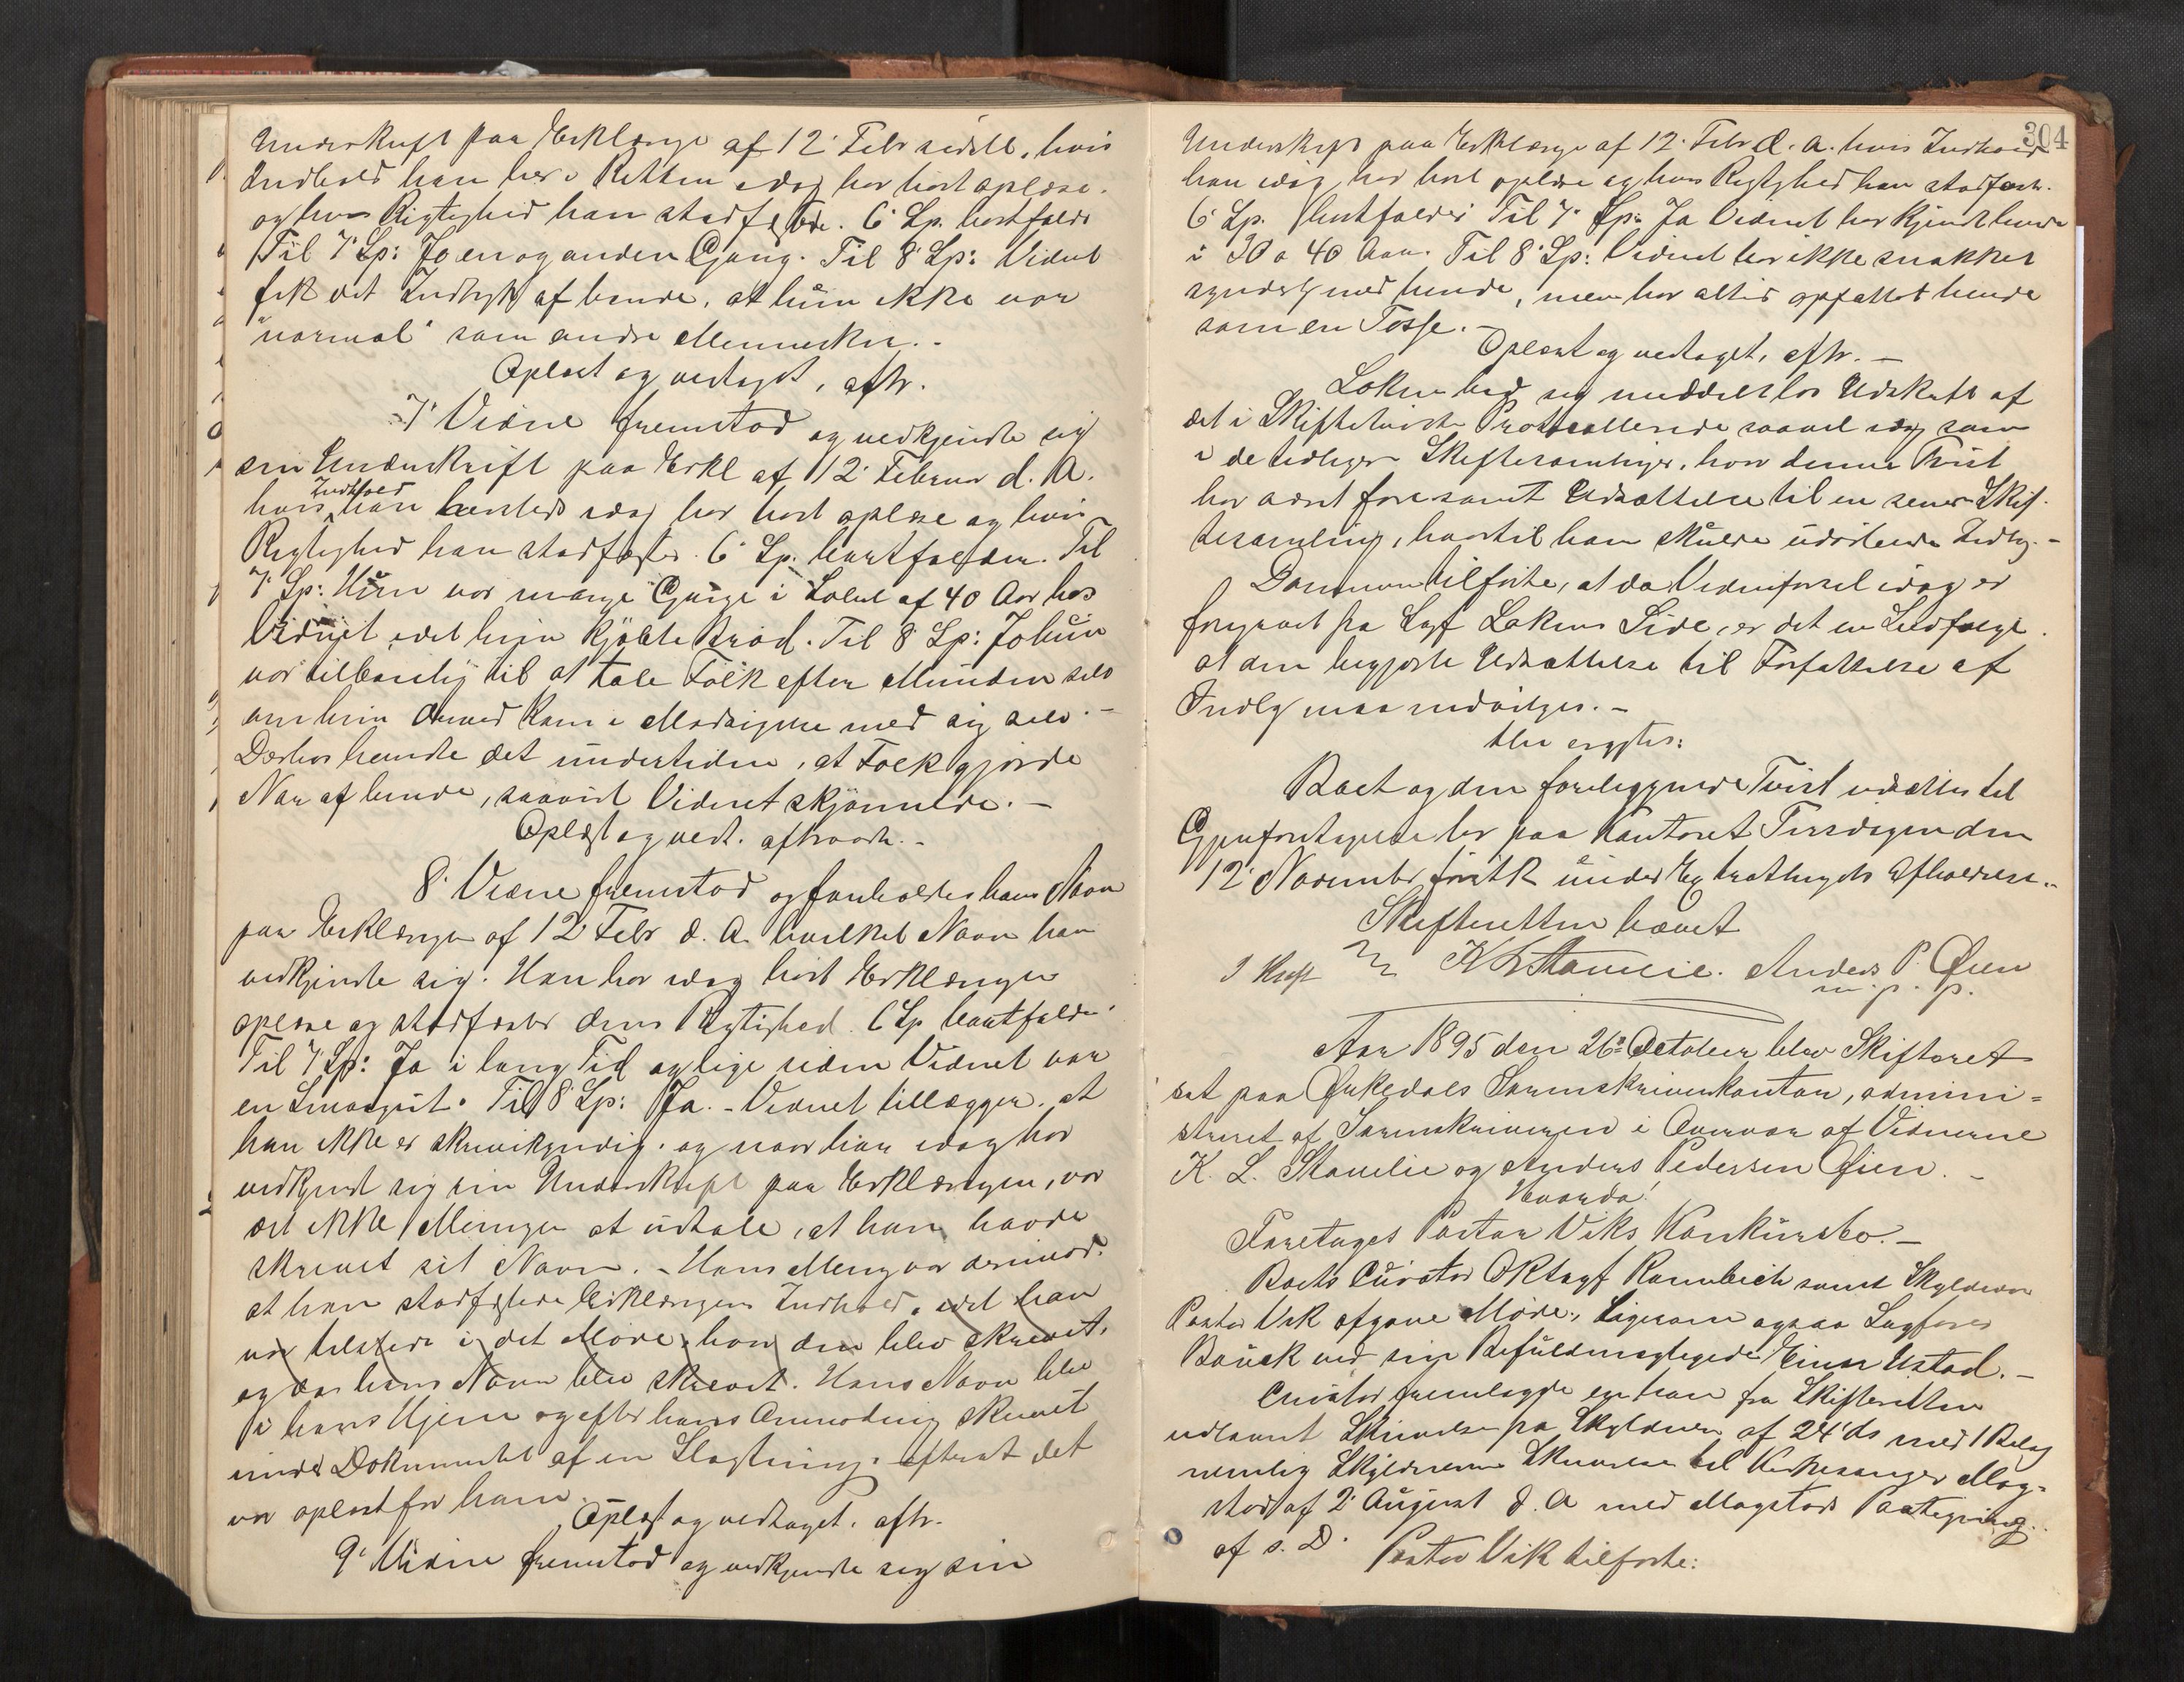 Underskrift paa Erklæringe af 12' Febr sidstl, hvis
Indhold han her i Retten idag har hørt oplæse.
og hvis Rigtighed han stadfæstede. 6' Sp. bortfaldt
Til 7' Sp: Jo en og anden Gang. Til 8' Sp: Vidnet
fik det Indtryk af hende, at hun ikke var
"normal" som andre Mennesker. -
Oplæst og vedtaget, aftr.
7' Vidne fremstod og vedkjendte sig
sin Underskrift paa Erkl af 12' Februar d. A.
hvis Indhold han idag har hørt oplæse og hvis
Rigtighed han stadfæster. 6' Sp. bortfalder. Til
7' Sp: Hun var mange Gange i Løbet af 40 Aar hos
Vidnet, idet hun kjøbte Brød. Til 8' Sp: Jo hun
var tilbøielig til at tale Folk efter Munden selv
om hun derved kom i Modsigelse med sig selv. -
Derhos hendte det undertiden, at Folk gjorde
Nar af hende, saavidt Vidnet skjønnede. -
Oplæst og vedt. aftraadte. -
8' Vidne fremstod og foreholdtes hans Navn
paa Erklæringen af 12 Febr d. A. hvilket Navn han
vedkjendte sig. Han har idag hørt Erklæringen
oplæse og stadfæster dens Rigtighed. 6 Sp bortfalder.
Til 7' Sp: Ja i lang Tid og lige siden Vidnet var
en Smaagut. Til 8' Sp: Ja. - Vidnet tillægger, at
han ikke er skrivekyndig, og naar han idag har
vedkjendt sig sin Underskrift paa Erklæringen, var
det ikke Meningen at udtale, at han havde
skrevet sit Navn. - Hans Mening var derimod,
at han stadfæstede Erklæringens Indhold, idet han
var tilstede i det Møde, hvor den blev skrevet,
og da hans Navn blev skrevet. Hans Navn blev
i hans Hjem og efter hans Anmodning skrevet
under Dokumentet af en Slægtning, efterat det
var oplæst for ham.
Oplæst og vedtaget, aftr.
9' Vidne fremstod og vedkjendte sig sin
304
Underskrift paa Erklæringe af 12' Febr d. A. hvis Indhold
han idag har hørt oplæse og hvis Rigtighed han stadfæst.
6' Sp. bortfalder Til 7' Sp: Ja Vidnet har kjendt hende
i 30 a 40 Aar. Til 8' Sp: Vidnet har ikke snakket
synderlig med hende, men har altid opfattet hende
som en Tosse. -
Oplæst og vedtaget, aftr. -
Løken bad sig meddelt Udskrift af
det i Skiftetvisten Protocollerede saavel idag som
i de tidligere Skiftesamlinger, hvor denne Tvist
har været fore samt Udsættelse til en senere Skif-
tesamling, hvortil han skulde udarbeide Indlæg. -
Dommeren tilførte, at da Vidneførsel idag er
foregaaet fra Sagf Løkens Side, er det en Selvfølge
at den begjærte Udsættelse til Forfattelse af
Indlæg maa indvilges. -
blev eragtet:
Boet og den foreliggende Tvist udsættes til
Gjenforetagelse her paa Kontoret Tirsdagen den
12' November førstk under Extrathingets Afholdelse. -
Skifteretten hævet
K L Stamlie. Anders P. Øien
m. p. p.
Aar 1895 den 26' October blev Skifteret
sat paa Ørkedals Sorenskriverkontor, admini-
streret af Sorenskriveren i Overvær af Vidnerne
K. L. Stamlie og Anders Pedersen Øien. -
Hvorda!
Foretages Pastor Viks Konkursbo. -
Boets Curator ORtsagf Rambech samt Skyldneren
Pastor Vik afgave Møde, ligesom ogsaa Sagfører
Bauck ved sin Befuldmægtigede Einar Ustad. -
Curator fremlagde en ham fra Skifteretten
udlaant Skrivelse fra Skyldneren af 24' ds med 1 Bilag
nemlig Skyldnerens Skrivelse til Kirkesanger Mog-
stad af 2' August d. A med Mogstads Paategning
af s. D.
Pastor Vik tilførte: